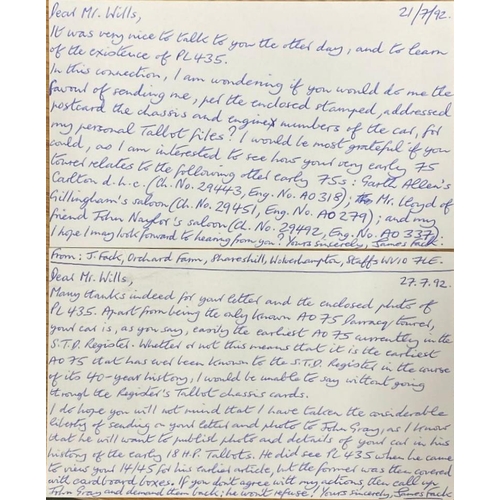 Dear Mr. Wills,
21/7/92.
It was very nice to talk to you the other day, and to learn
of the existence of PL 435.
In this connection, I am wondering if you would do me the
favour of sending me, per the enclosed stamped, addressed
postcard the chassis and engine numbers of the car, for
my personal Talbot files? I would be most grateful if you
could, as I am interested to see how your very early 75
tourer relates to the following other early 75s: Garth Allen's
Carlton d.h.c. (Ch. No. 29443, Eng. No. AO 318); Mr. Lloyd of
Gillingham's saloon (Ch. No. 29451, Eng. No. AO 279); and my
friend John Naylor's saloon (Ch. No. 29492, Eng. No. AO 337).
I hope I may look forward to hearing from you? Yours sincerely, James Fack.
From: J. Fack, Orchard Farm, Shareshill, Wolverhampton, Staffs WV10 7LE.
Dear Mr. Wills,
27.7.92.
Many thanks indeed for your letter and the enclosed photo of
PL 435. Apart from being the only known AO 75 Darracq tourer,
your car is, as you say, easily the earliest AO 75 currently in the
S.T.D. Register. Whether or not this means that it is the earliest
AO 75 that has ever been known to the S.T.D. Register in the course
of its 40-year history, I would be unable to say without going
through the Register's Talbot chassis cards.
I do hope you will not mind that I have taken the considerable
liberty of sending on your letter and photo to John Gray, as I know
that he will want to publish photo and details of your car in his
history of the early 18 H.P. Talbots. He did see PL 435 when he came
to view your 14/45 for his earlier article, but the former was then covered
with cardboard boxes. If you don't agree with my actions, then call up
John Gray and demand them back; he won't refuse! Yours sincerely, James Fack